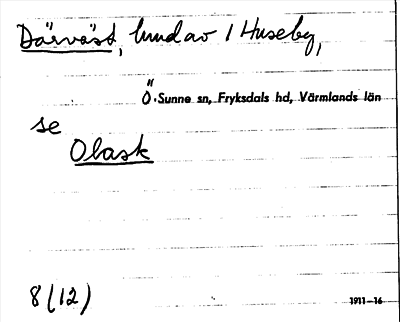 Därväst, lund av 1 Huseby,
Ö. Sunne sn, Fryksdals hd, Värmlands län
se
Olask
8(12)
1911–16